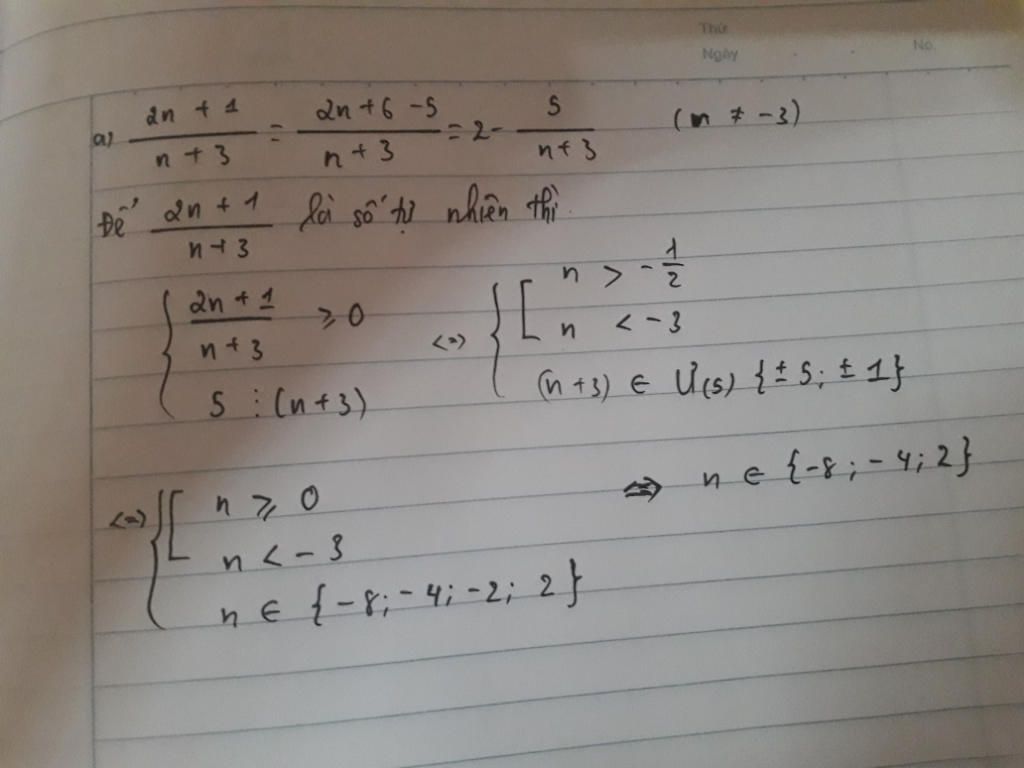 Thứ
Ngày No.
a) \frac{2n + 1}{n + 3} = \frac{2n + 6 - 5}{n + 3} = 2 - \frac{5}{n + 3} (n ≠ -3)
Để \frac{2n + 1}{n + 3} là số tự nhiên thì.
{ \frac{2n + 1}{n + 3} ≥ 0 <=> { [ n > -\frac{1}{2}
n < -3
5 ⋮ (n + 3) (n + 3) ∈ Ư(5) {± 5; ± 1}
<=> { [ n ≥ 0 <=> n ∈ {-8; -4; 2}
n < -3
n ∈ {-8; -4; -2; 2}